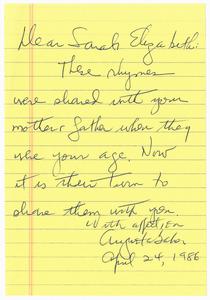 Dear Sarah Elizabeth:
These rhymes
were shared with your
mother & father when they
were your age. Now
it is their turn to
share them with you.
With affection
Augusta Baker
April 24, 1986